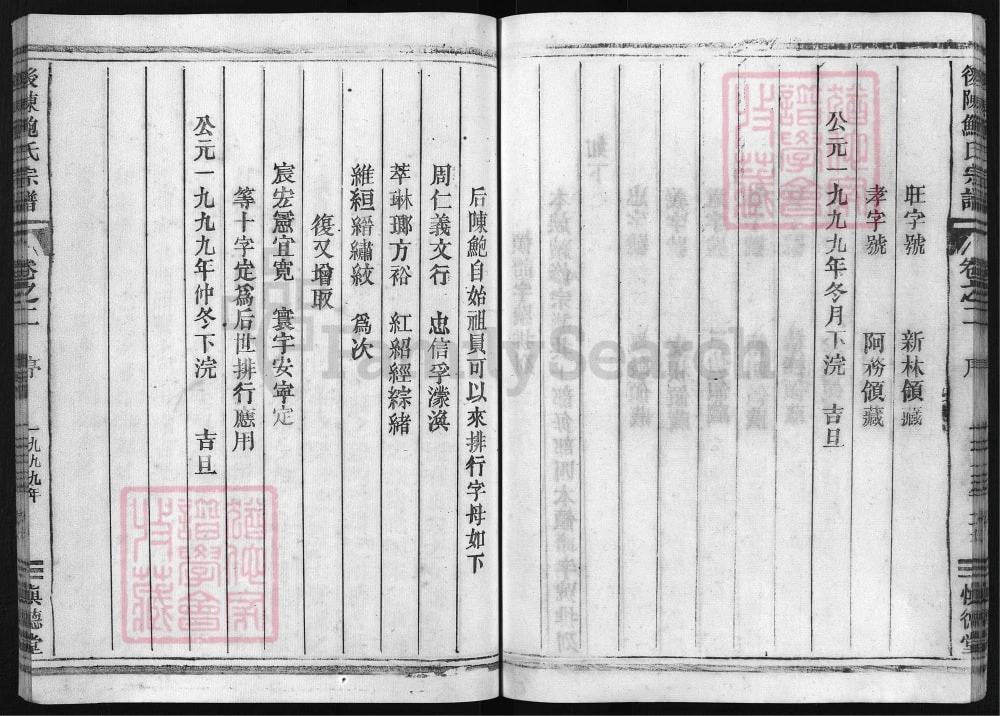 後陳鮑氏宗譜
卷之二
旺字號 新林領藏
孝字號 阿務領藏
公元一九九九年冬月下浣 吉旦
后陳鮑自始祖貝可以來排行字母如下
周仁義文行 忠信孚濛渙
萃琳瑯方裕 紅紹經綜緒
維絙縉繡紋 為次
復又增取
宸宏憲宜寬 寰宇安寧定
等十字定為后世排行應用
公元一九九九年仲冬下浣 吉旦
後陳鮑氏宗譜
卷之二
一九九九年
慎德堂
FamilySearch